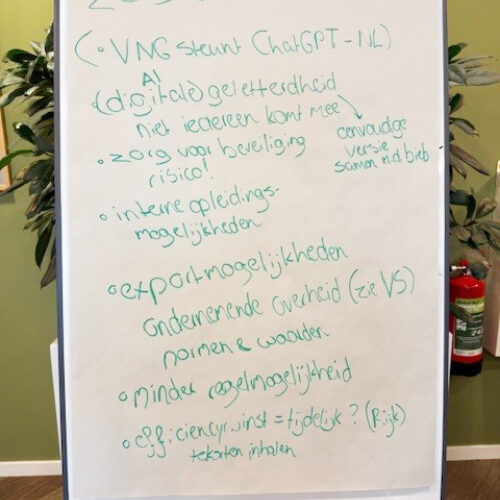 (• VNG steunt ChatGPT-NL)
AI
(digitale) geletterdheid
niet iedereen komt mee
eenvoudige
versie
samen m.d. bieb
• zorg voor beveiliging
risico!
• interne opleidings-
mogelijkheden
• exportmogelijkheden
ondernemende overheid (zie VS)
normen & waarden
• minder regelmogelijkheid
• efficiencywinst = tijdelijk? (Rijk)
tekorten inhalen